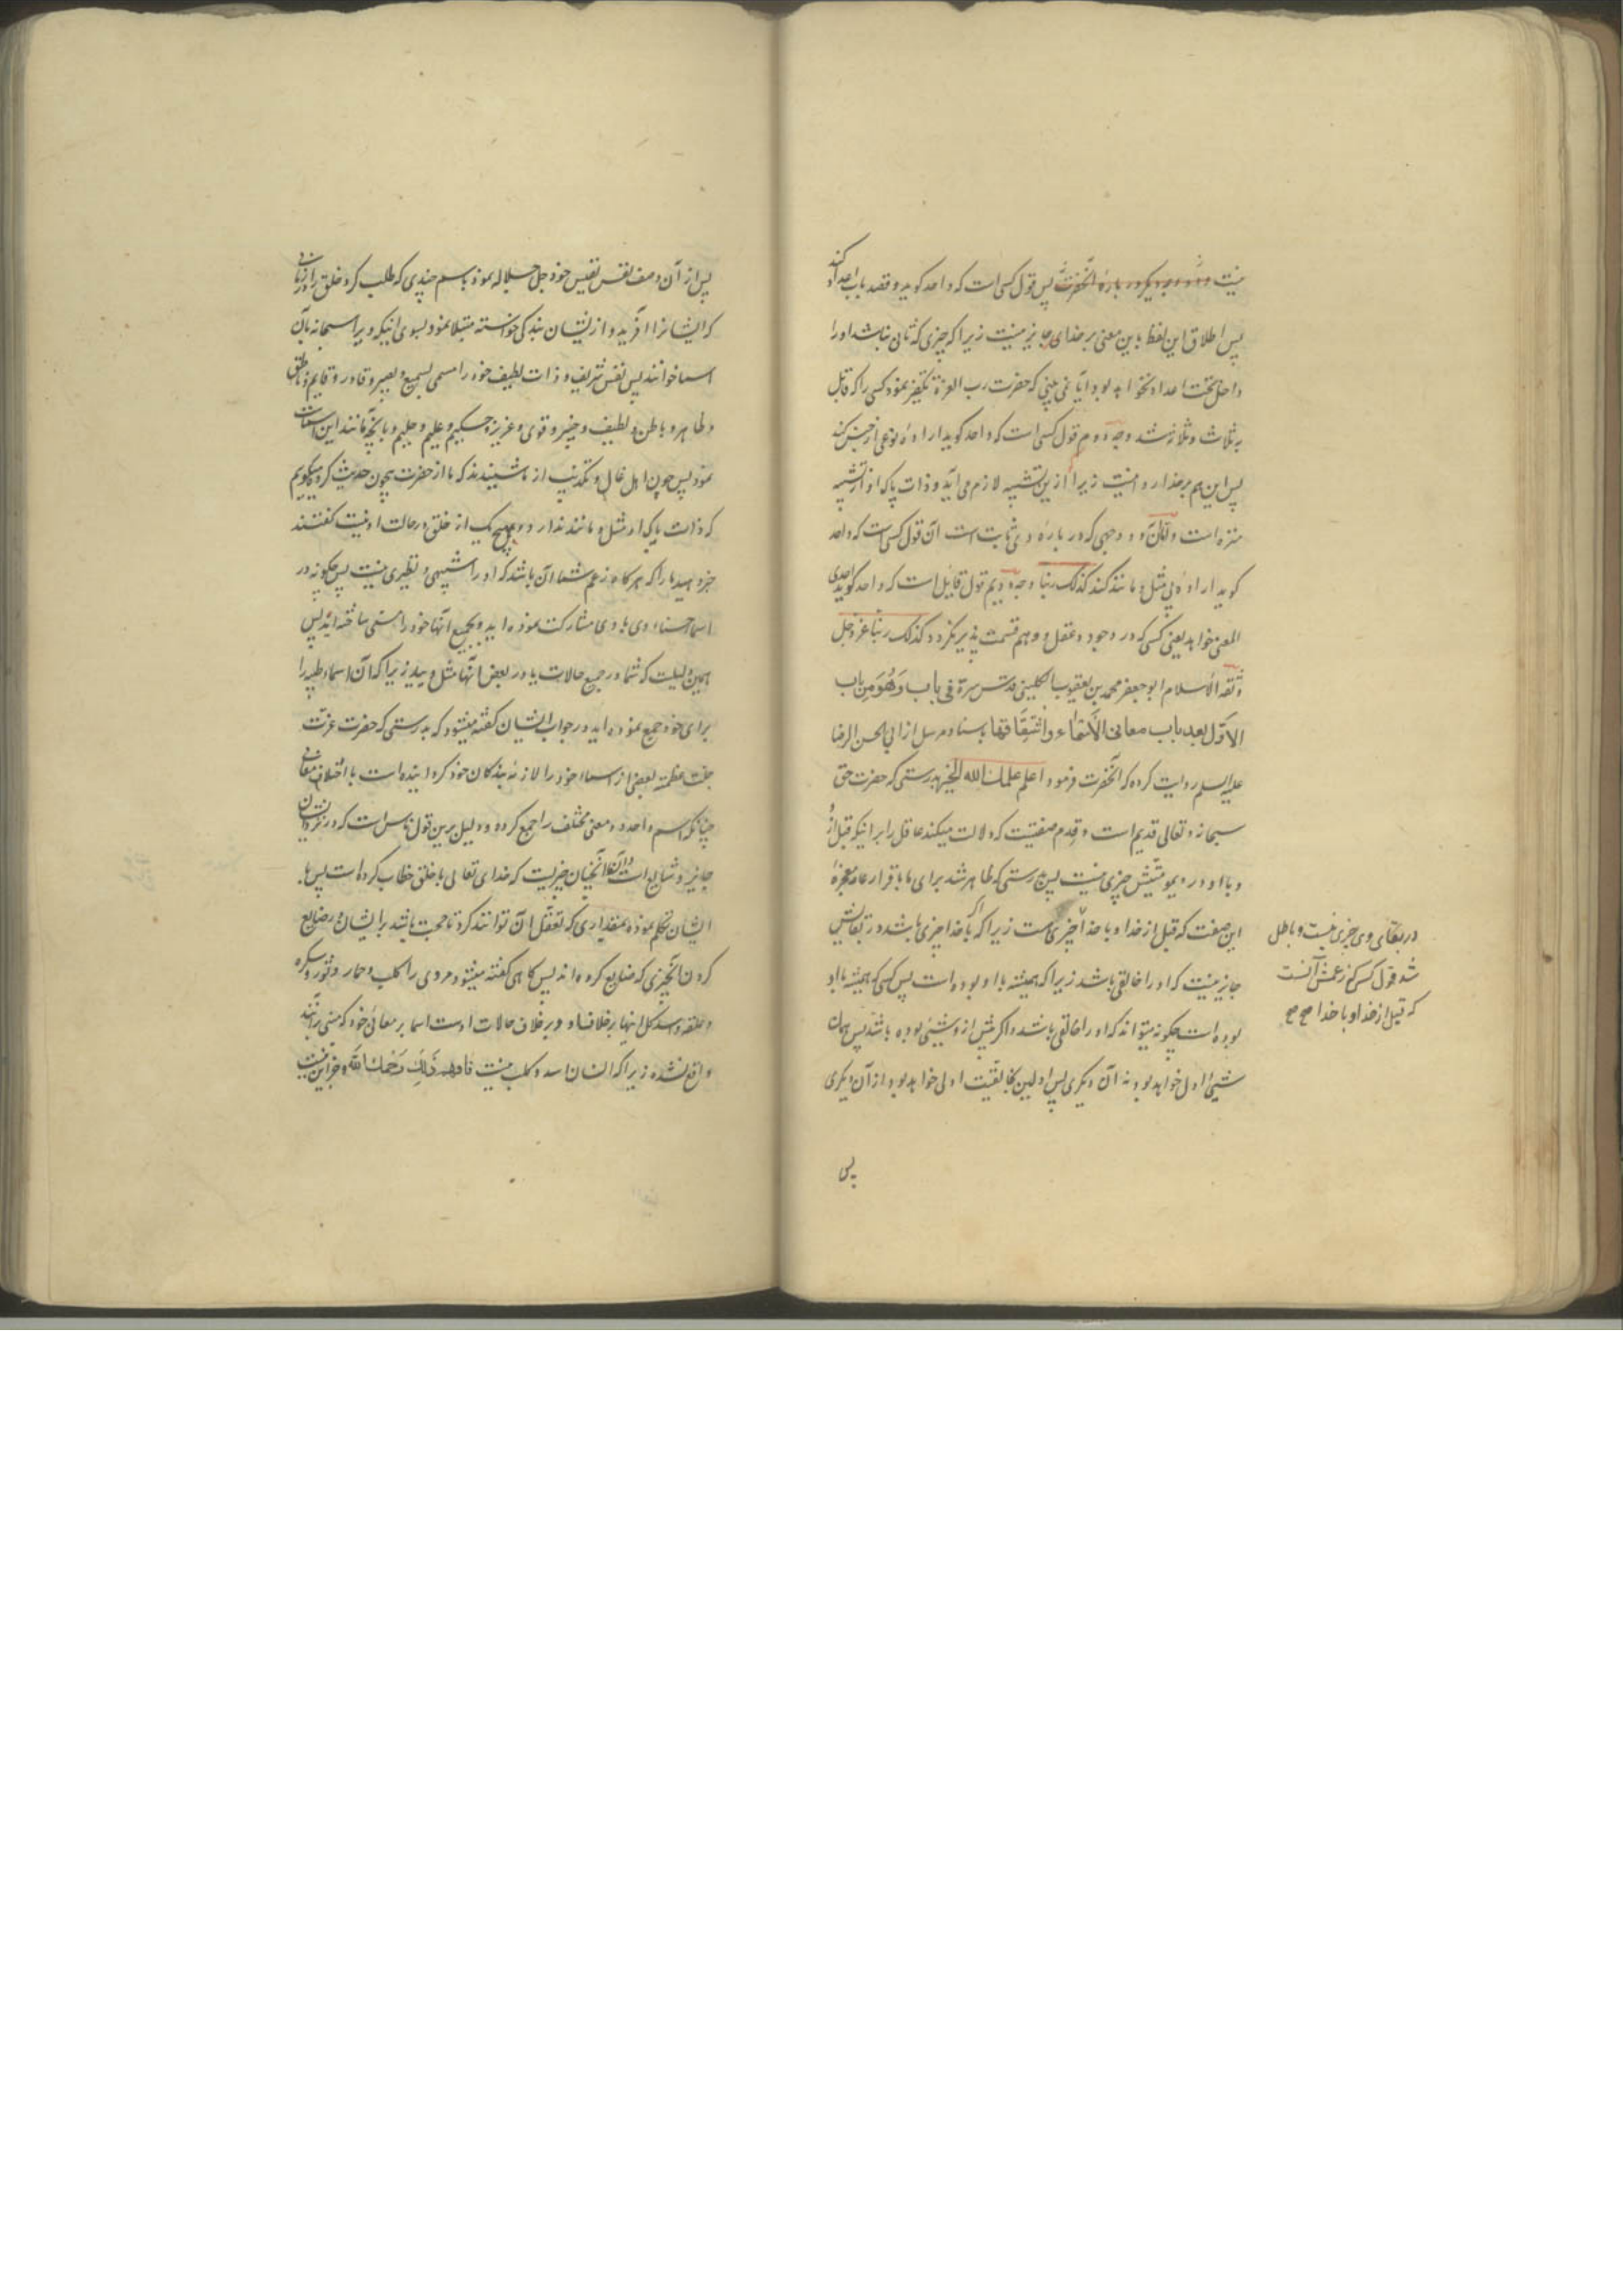 نیست و دو وجه دیگر در باره آنحضرت پس قول کسی است که واحد گوید و قصد باب اعداد کند
پس اطلاق این لفظ باین معنی بر خدای جایز نیست زیرا که چیزی که ثانی نباشد او را
داخل تحت اعداد نخواهد بود آیا نمی بینی که حضرت رب العزة تکفیر نمود کسی را که قایل
به ثلاث و ثلاثه شد وجه دوم قول کسی است که واحد گوید اراده نوعی از جنس کند
پس این هم بر خدا روا نیست زیرا ازین تشبیه لازم می آید و ذات پاک او از تشبیه
منزه است و اما آن دو وجهی که در باره وی ثابت است آن قول کسی است که واحد
گوید اراده بی مثل و مانند کند کذلک ربنا وجه دویم قول قایل است که واحد گوید احدی
المعنی خواهد یعنی کسی که در وجود و عقل و وهم قسمت پذیر نگردد کذلک ربنا عز و جل
ثقة الاسلام ابو جعفر محمد بن یعقوب الکلینی قدس سره فی باب وَهُوَ مِن باب
الاَوّل بعد باب معانی الاَسْمَاء وَاشْتِقَاقها باسناد مرسل از ابی الحسن الرضا
علیه السلم روایت کرده که آنحضرت فرمود اعلم علمك الله الخیر بدرستی که حضرت حق
سبحانه و تعالی قدیم است و قِدم صفتیست که دلالت میکند عاقل را بر اینکه قبل از او
و با او در دیمومتیش چیزی نیست پس بدرستی که ظاهر شد برای ما باقرار عامه معجزهٔ
این صفت که قبل از خدا و با خدا چیزی نیست زیرا که اگر با خدا چیزی باشد در بقایش
جایز نیست که او را خالقی باشد زیرا که همیشه با او بوده است پس کسی که همیشه با او
بوده است چگونه میتواند که او را خالقی باشد و اگر پیش از او شیئی بوده باشد پس همان
شیئی اول خواهد بود نه آن دیگری پس اولین بخالقیت اولی خواهد بود از آن دیگری
پس
در بقای وی چیزی نیست و باطل
شد قول کسی که زعمش آنست
که قبل از خدا و با خدا صح صح
پس از آن وصف نفس نفیس خود جل جلاله نمود باسم چندی که طلب کرد خلق را
که ایشانرا آفرید و از ایشان بندگی خواسته مبتلا نمود بسوی اینکه ویرا سبحانه بآن
اسما خوانند پس نفس شریف و ذات لطیف خود را مسمی بسمیع و بصیر و قادر و قایم و ناطق
و ظاهر و باطن و لطیف و خبیر و قوی و عزیز و حکیم و علیم و حلیم و بآنچه مانند این اسماست
نمود پس چون اهل غال و تکذیب از ما شنیدند که ما از حضرت بیچون حدیث کرده میگویم
که ذات پاک او مثل و مانند ندارد و هیچ یک از خلق در حالت او نیست گفتند
خبر دهید ما را که هر گاه زعم شما آن باشد که او را شبیهی و نظیری نیست پس چگونه در
اسما حسناء وی با وی مشارکت نموده اید و بجمیع آنها خود را مسمی ساخته اید پس
همین دلیلیست که شما در جمیع حالات یا در بعض آنها مثل ویید زیرا که آن اسماء طیبه را
برای خود جمع نموده اید در جواب ایشان گفته میشود که بدرستی که حضرت عزت
جلت عظمته بعضی از اسماء خود را لازمه بندگان خود گردانیده است با اختلاف معانی
چنانکه اسم واحد دو معنی مختلف را جمع کرده و دلیل برین قول ناس است که در نزد ایشان
جایز و شایع است و آن آنچنان چیزیست که خدای تعالی با خلق خطاب کرده است پس با
ایشان تکلم نموده بمقداری که تعقل آن توانند کرد تا حجت باشد بر ایشان در ضایع
کردن آنچیزی که ضایع کرده اند پس گاهی گفته میشود مردی را کلب و حمار و ثور و سکره
و علقه و اسد کل اینها بر خلاف او و بر خلاف حالات اوست اسما بر معانی خود که مبنی بر آنند
واقع نشده زیرا که انسان اسد و کلب نیست فافهم ذَلِكَ رَحِمَكَ اللَّه و جز این نیست